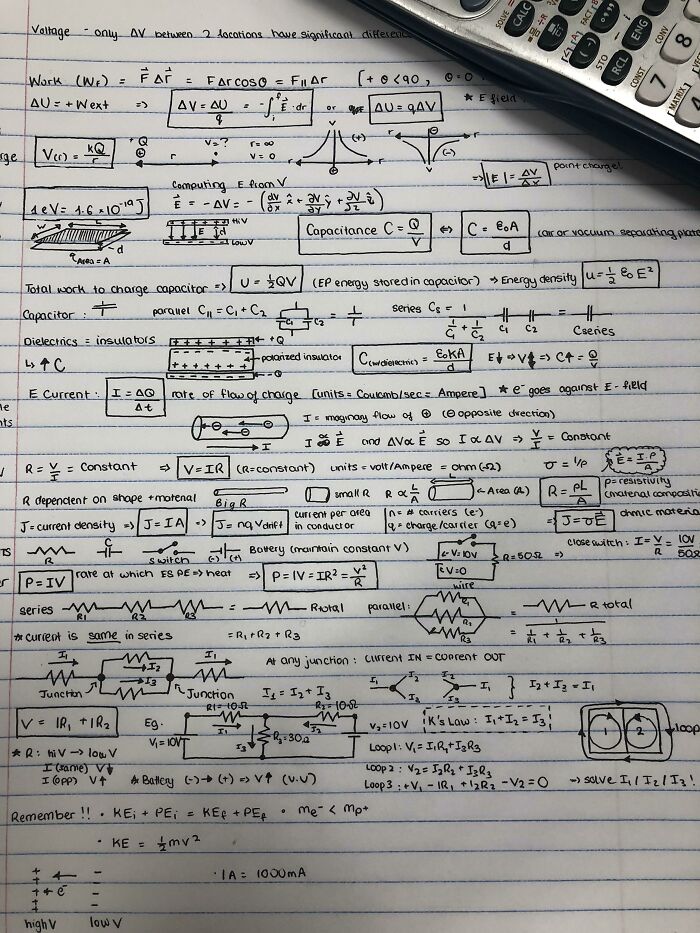 SOLVE =
CALC
ENG
STO
RCL
CONST
CONV
MATRIX
7
8
Voltage - only ΔV between 2 locations have significant
Work (Wf) = F⃗ Δr⃗ = FΔr cosθ = F∥Δr [+ θ<90, θ=0
ΔU = +Wext => ΔV = ΔU/q = -∫ᵢᶠ E⃗·dr or ΔU = qΔV * E field
V(r) = kQ/r +Q ⊕ r V=? r=∞ V=0 V r (+) ⊕ r ⊖ r V (-) => |E| = ΔV/Δx point charge!
Computing E from V
1eV = 1.6 × 10⁻¹⁹ J E⃗ = -ΔV = -(dV/dx x̂ + ∂V/∂y ŷ + ∂V/∂z
w L d Area = A Hi V E d Low V Capacitance C = Q/V <=> C = ε₀A/d (air or vacuum separating plate
Total work to charge capacitor => U = ½QV (EP energy stored in capacitor) => Energy density u = ½ ε₀ E²
Capacitor : parallel C∥ = C₁ + C₂ C₁ C₂ = series Cs = 1/(1/C₁ + 1/C₂) C₁ C₂ = Cseries
Dielectrics = insulators + + + + + + + +Q
↳ ↑ C polarized insulator -Q C(w/dielectric) = ε₀KA/d E↓ => V↓ => C↑ = Q/V
E Current : I = ΔQ/Δt rate of flow of charge [units = Coulomb/sec = Ampere] * e⁻ goes against E-field
I = imaginary flow of ⊕ (⊖ opposite direction)
I I ∝ E⃗ and ΔV ∝ E⃗ so I ∝ ΔV => V/I = Constant
R = V/I = Constant => V = IR (R = constant) units = volt/Ampere = ohm (Ω) σ = 1/ρ E⃗ = I·ρ/A
R dependent on shape + material Big R small R R ∝ L/A L Area (A) R = ρL/A ρ = resistivity (material compositio
J = current density => J = IA => J = nqVdrift current per area in conductor n = # carriers (e⁻) q = charge/carrier (q=e) => J = σE⃗ ohmic materia
R C switch (-) (+) Battery (maintain constant V) V=10V V=0 R=50Ω wire => close switch : I = V/R = 10V/50Ω
P = IV rate at which ES PE => heat => P = IV = IR² = V²/R
series R₁ R₂ R₃ = Rtotal parallel : R₁ R₂ R₃ = R total
* current is same in series = R₁ + R₂ + R₃ = 1/(1/R₁ + 1/R₂ + 1/R₃)
At any junction : current IN = current OUT
I₁ I₂ I₃ I₁ Junction Junction I₁ = I₂ + I₃ I₁ I₂ I₃ I₂ I₃ I₁ } I₂ + I₃ = I₁
V = IR₁ + IR₂ Eg. V₁ = 10V R₁ = 10Ω I₁ I₃ R₃ = 30Ω R₂ = 10Ω I₂ V₂ = 10V K's Law : I₁ + I₂ = I₃ 1 2 loop
* R : hi V → low V Loop 1 : V₁ = I₁R₁ + I₃R₃
I (same) V↓ Loop 2 : V₂ = I₂R₂ + I₃R₃
I (opp) V↑ * Battery (-) → (+) => V↑ (v.v) Loop 3 : +V₁ - IR₁ + I₂R₂ - V₂ = 0 => solve I₁ / I₂ / I₃ !
Remember !! · KEi + PEi = KEf + PEf · me⁻ < mp⁺
· KE = ½mv²
+ + + e⁻ + + - - - - · 1A = 1000mA
high V low V